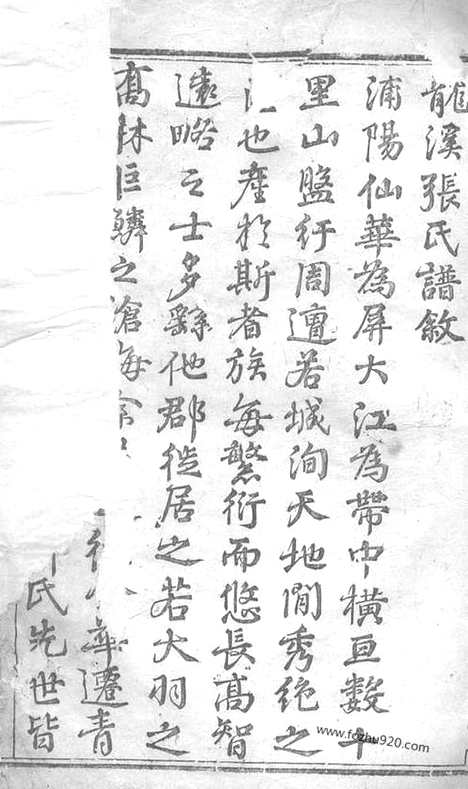 龍溪張氏譜敘
浦陽仙華為屏大江為帶中橫亘數十
里山盤紆周遭若城洵天地間秀絕之
也產於斯者族每繁衍而悠長高智
遠略之士多繇他郡徙居之若大羽之
高林巨鱗之滄海余
華遷青
氏先世皆
www.fozhu920.com